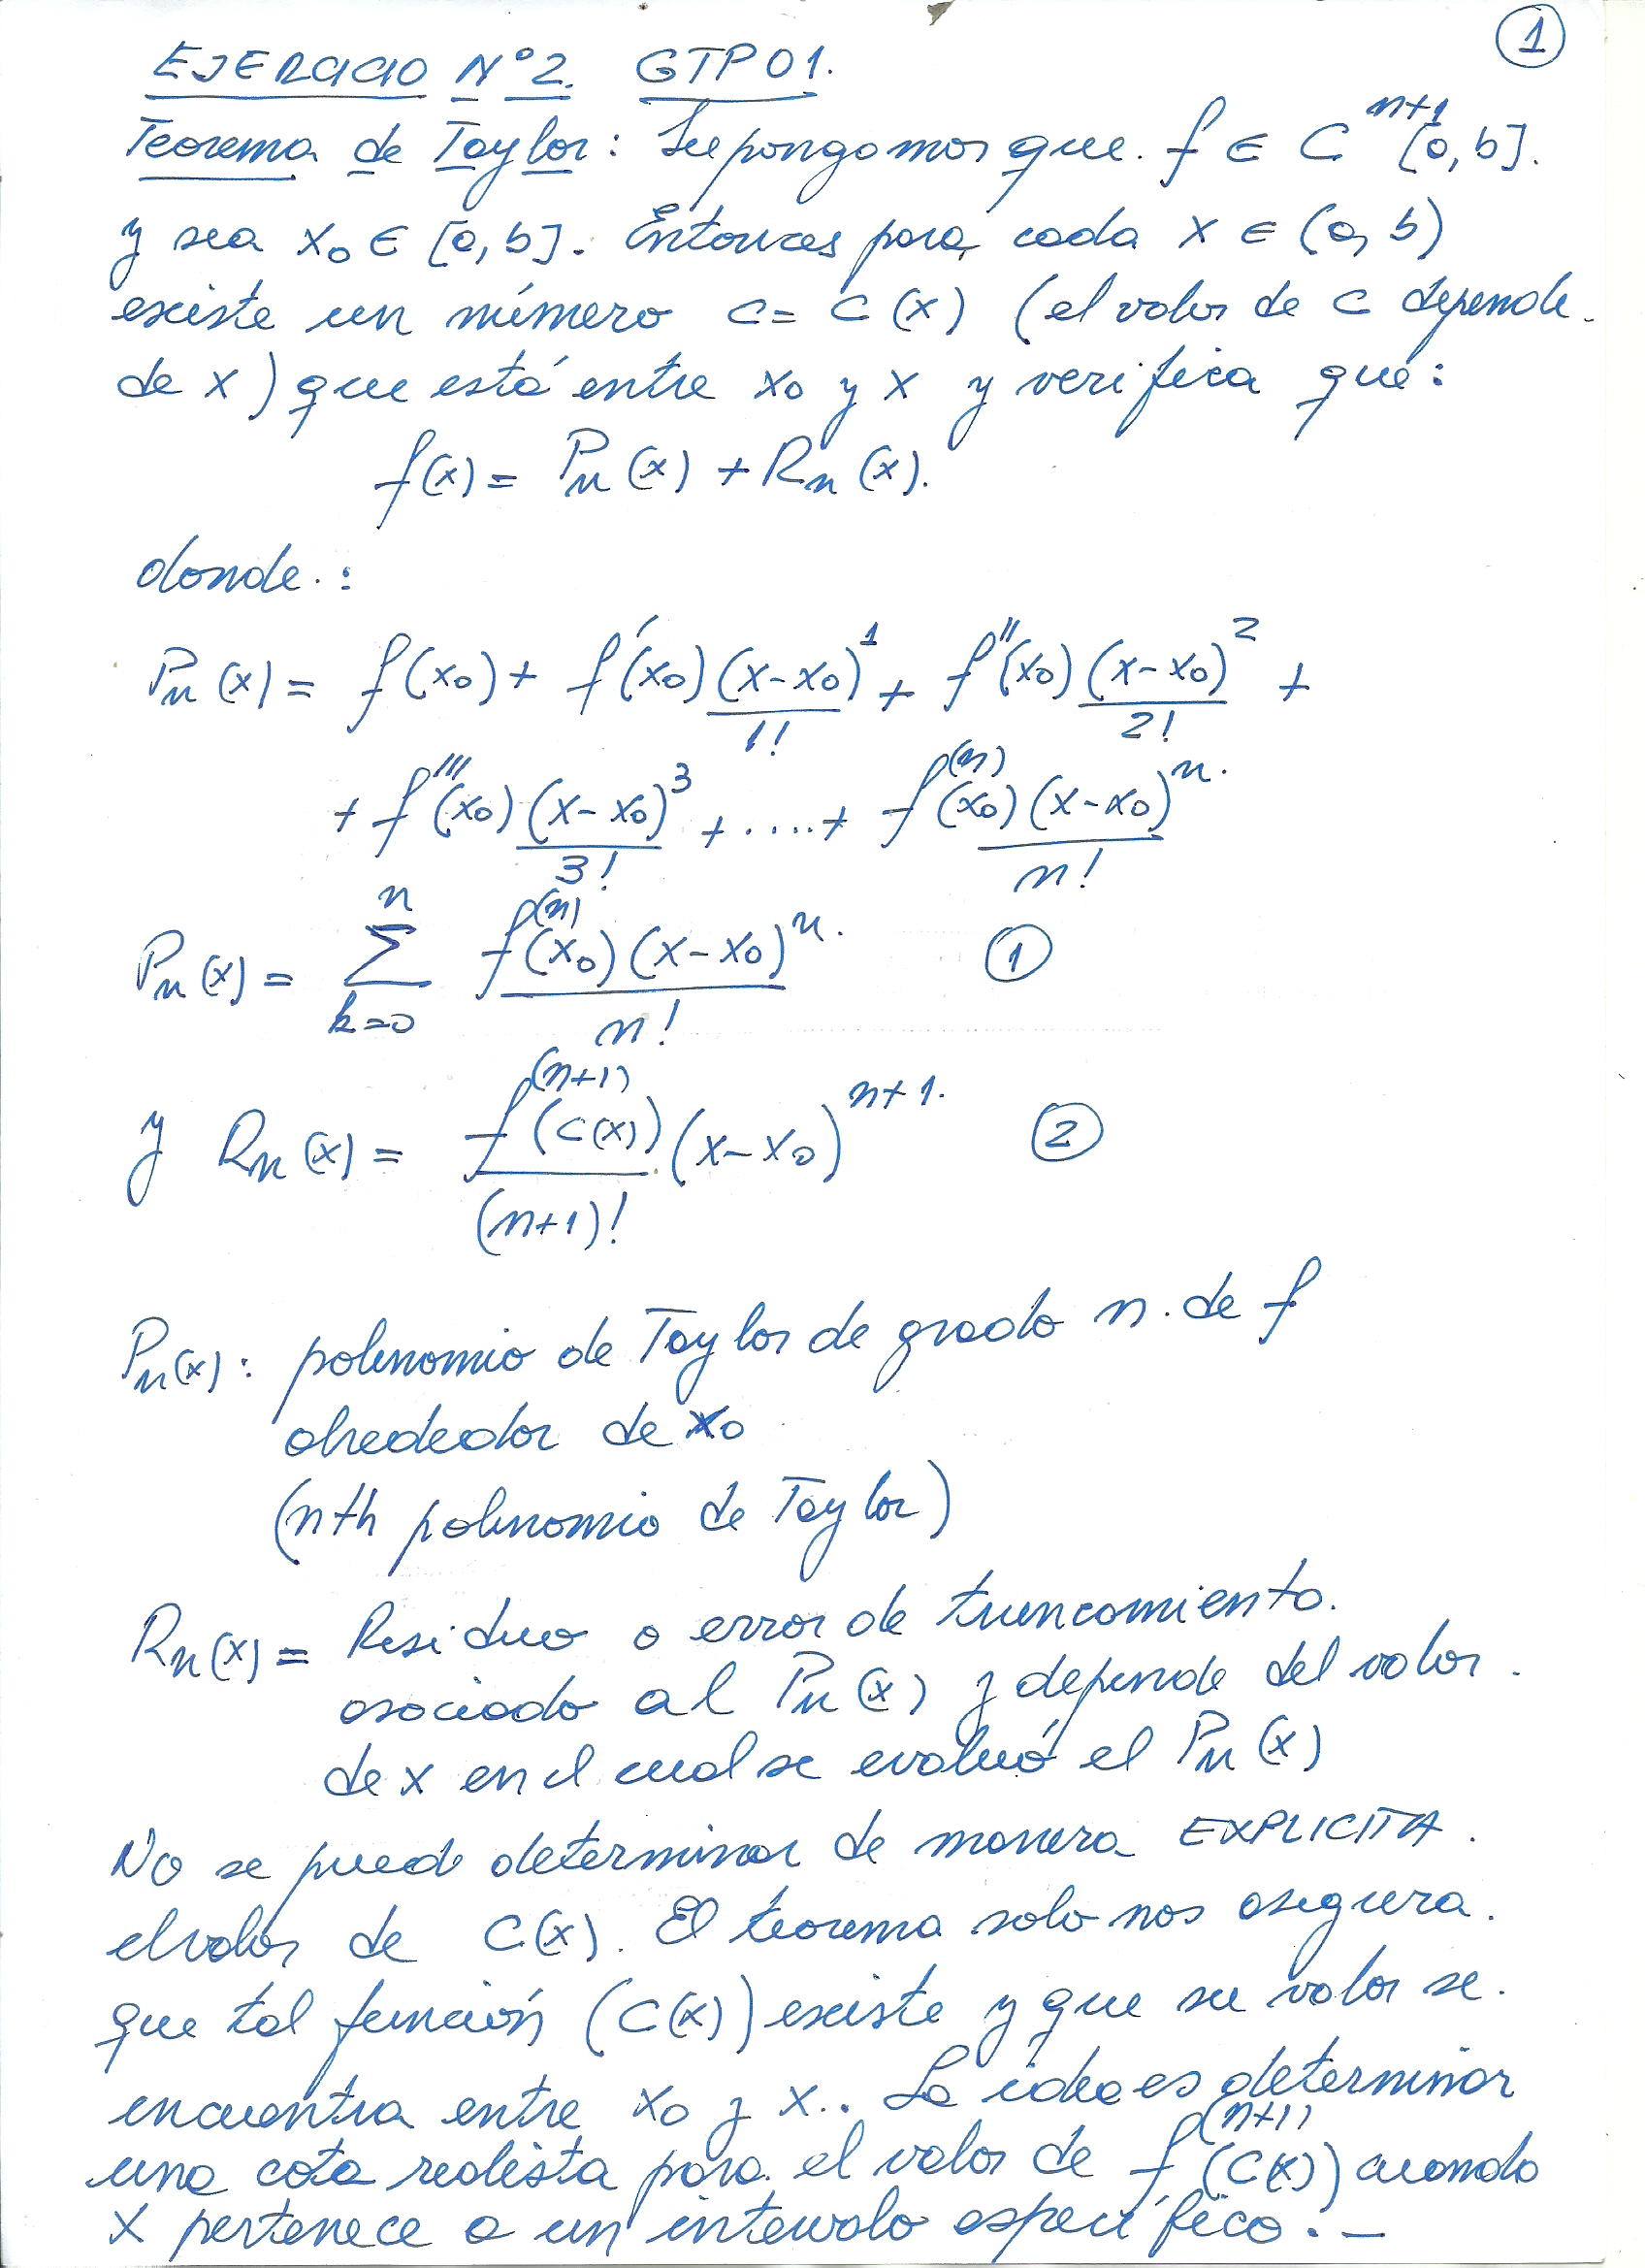 1
EJERCICIO Nº2. GTP01.
Teorema de Taylor: Supongamos que f ∈ C^{n+1}[a,b].
y sea x₀ ∈ [a,b]. Entonces para cada x ∈ (a,b)
existe un número c = c(x) (el valor de c depende
de x) que está entre x₀ y x y verifica que:
f(x) = Pn(x) + Rn(x).
donde:
Pn(x) = f(x₀) + f'(x₀) (x-x₀)^1/1! + f''(x₀) (x-x₀)^2/2! +
+ f'''(x₀) (x-x₀)^3/3! + ..... + f^(n)(x₀) (x-x₀)^n/n!
Pn(x) = Σ_{k=0}^{n} f^(n)(x₀)(x-x₀)^n/n! ①
y Rn(x) = f^(n+1)(c(x))/(n+1)! . (x-x₀)^{n+1} ②
Pn(x): polinomio de Taylor de grado n de f
alrededor de x₀
(nth polinomio de Taylor)
Rn(x) = Residuo o error de truncamiento.
asociado al Pn(x) y depende del valor
de x en el cual se evaluó el Pn(x)
No se puede determinar de manera EXPLICITA
el valor de C(x). El teorema solo nos asegura
que tal función (C(x)) existe y que su valor se
encuentra entre x₀ y x.. La idea es determinar
una cota realista para el valor de f^(n+1)(C(x)) cuando
x pertenece a un intervalo específico.-